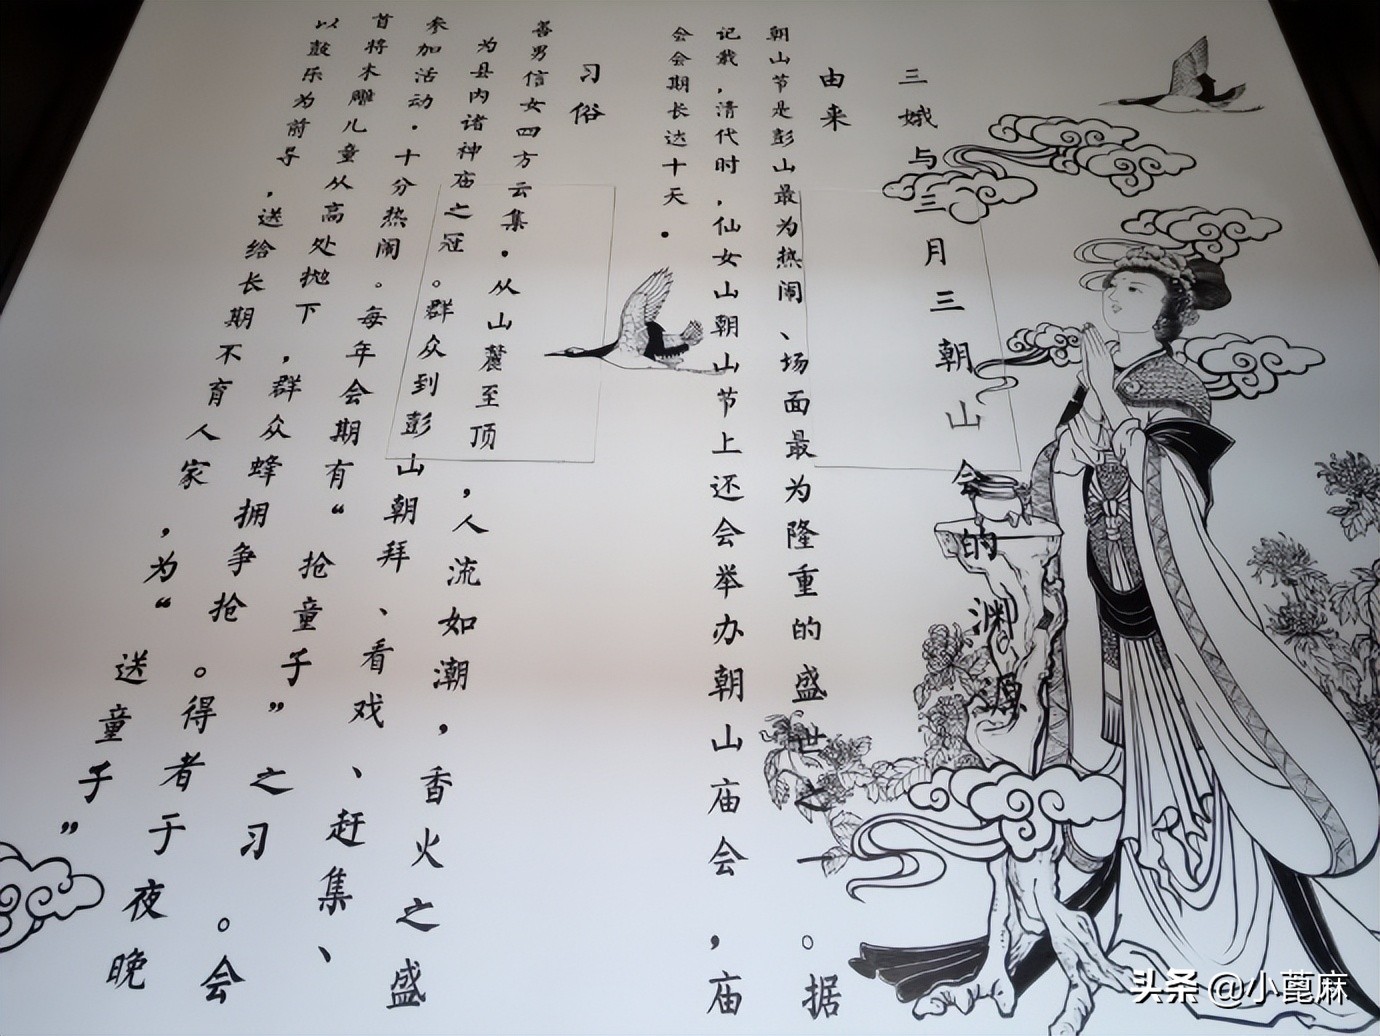 三娥与三月三朝山会的渊源
由来
朝山节是彭山最为热闹、场面最为隆重的盛世之一。据
记载,清代时,仙女山朝山节上还会举办朝山庙会,庙
会会期长达十天.
习俗
善男信女四方云集.从山麓至顶,人流如潮,香火之盛
为县内诸神庙之冠。群众到彭山朝拜、看戏、赶集、
参加活动.十分热闹。每年会期有“抢童子”之习。会
首将木雕儿童从高处抛下,群众蜂拥争抢。得者于夜晚
以鼓乐为前导,送给长期不育人家,为“送童子”
头条 @小蓖麻